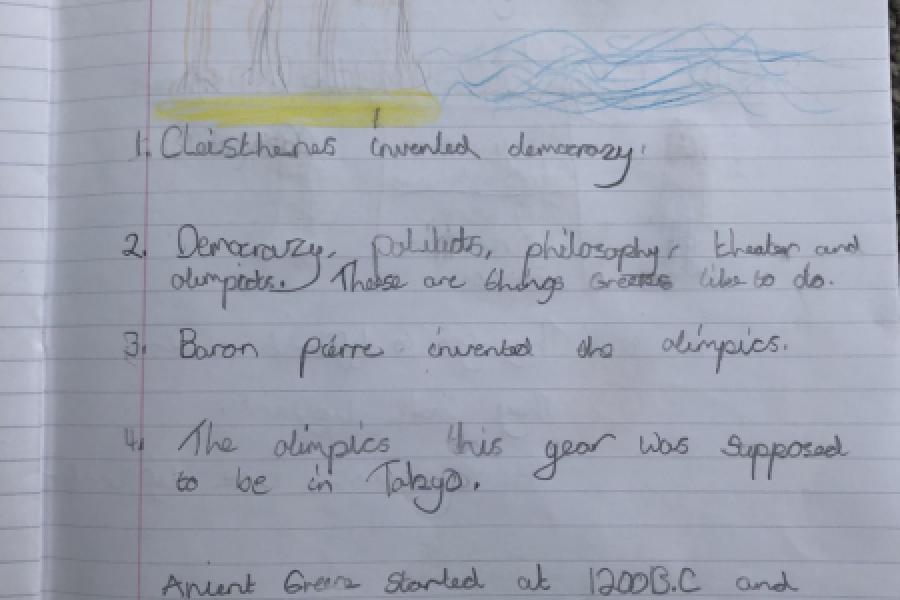 1. Cleisthenes invented democrazy.
2. Democrazy, politicts, philosophy, theater and
olimpicts. These are things Greeks like to do.
3. Baron pierre invented the olimpics.
4. The olimpics this year was supposed
to be in Tokyo.
Anient Greece started at 1200B.C and